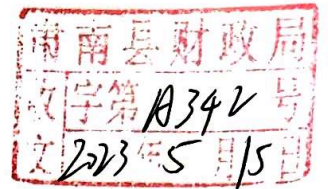 肃南县财政局
收字第A342号
文2023年5月15日